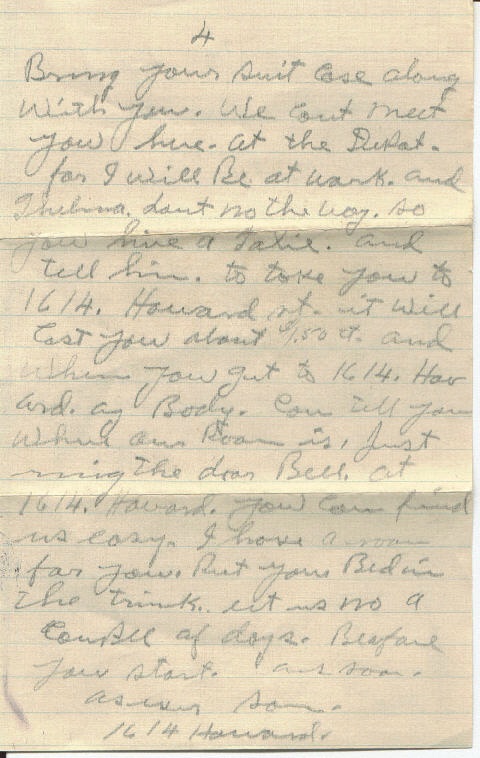 4
Bring your suit Case along
With you. We cant meet
you here. at the Depot.
for I will Be at work. and
Thelma. dont no the way. so
you hire a Taxie. and
tell him. to take you to
1614. Howard st. it will
Cost you about 1.50 ct. and
When you get to 1614. How
ard. any Body. Can tell you
Where our Room is, Just
ring the door Bell. at
1614. Howard. you Can find
us easy. I have a room
for you. Put your Bed in
the trunk. let us no a
Coupel of days. Beafore
you start. ans soon.
as ever
1614 Howard.